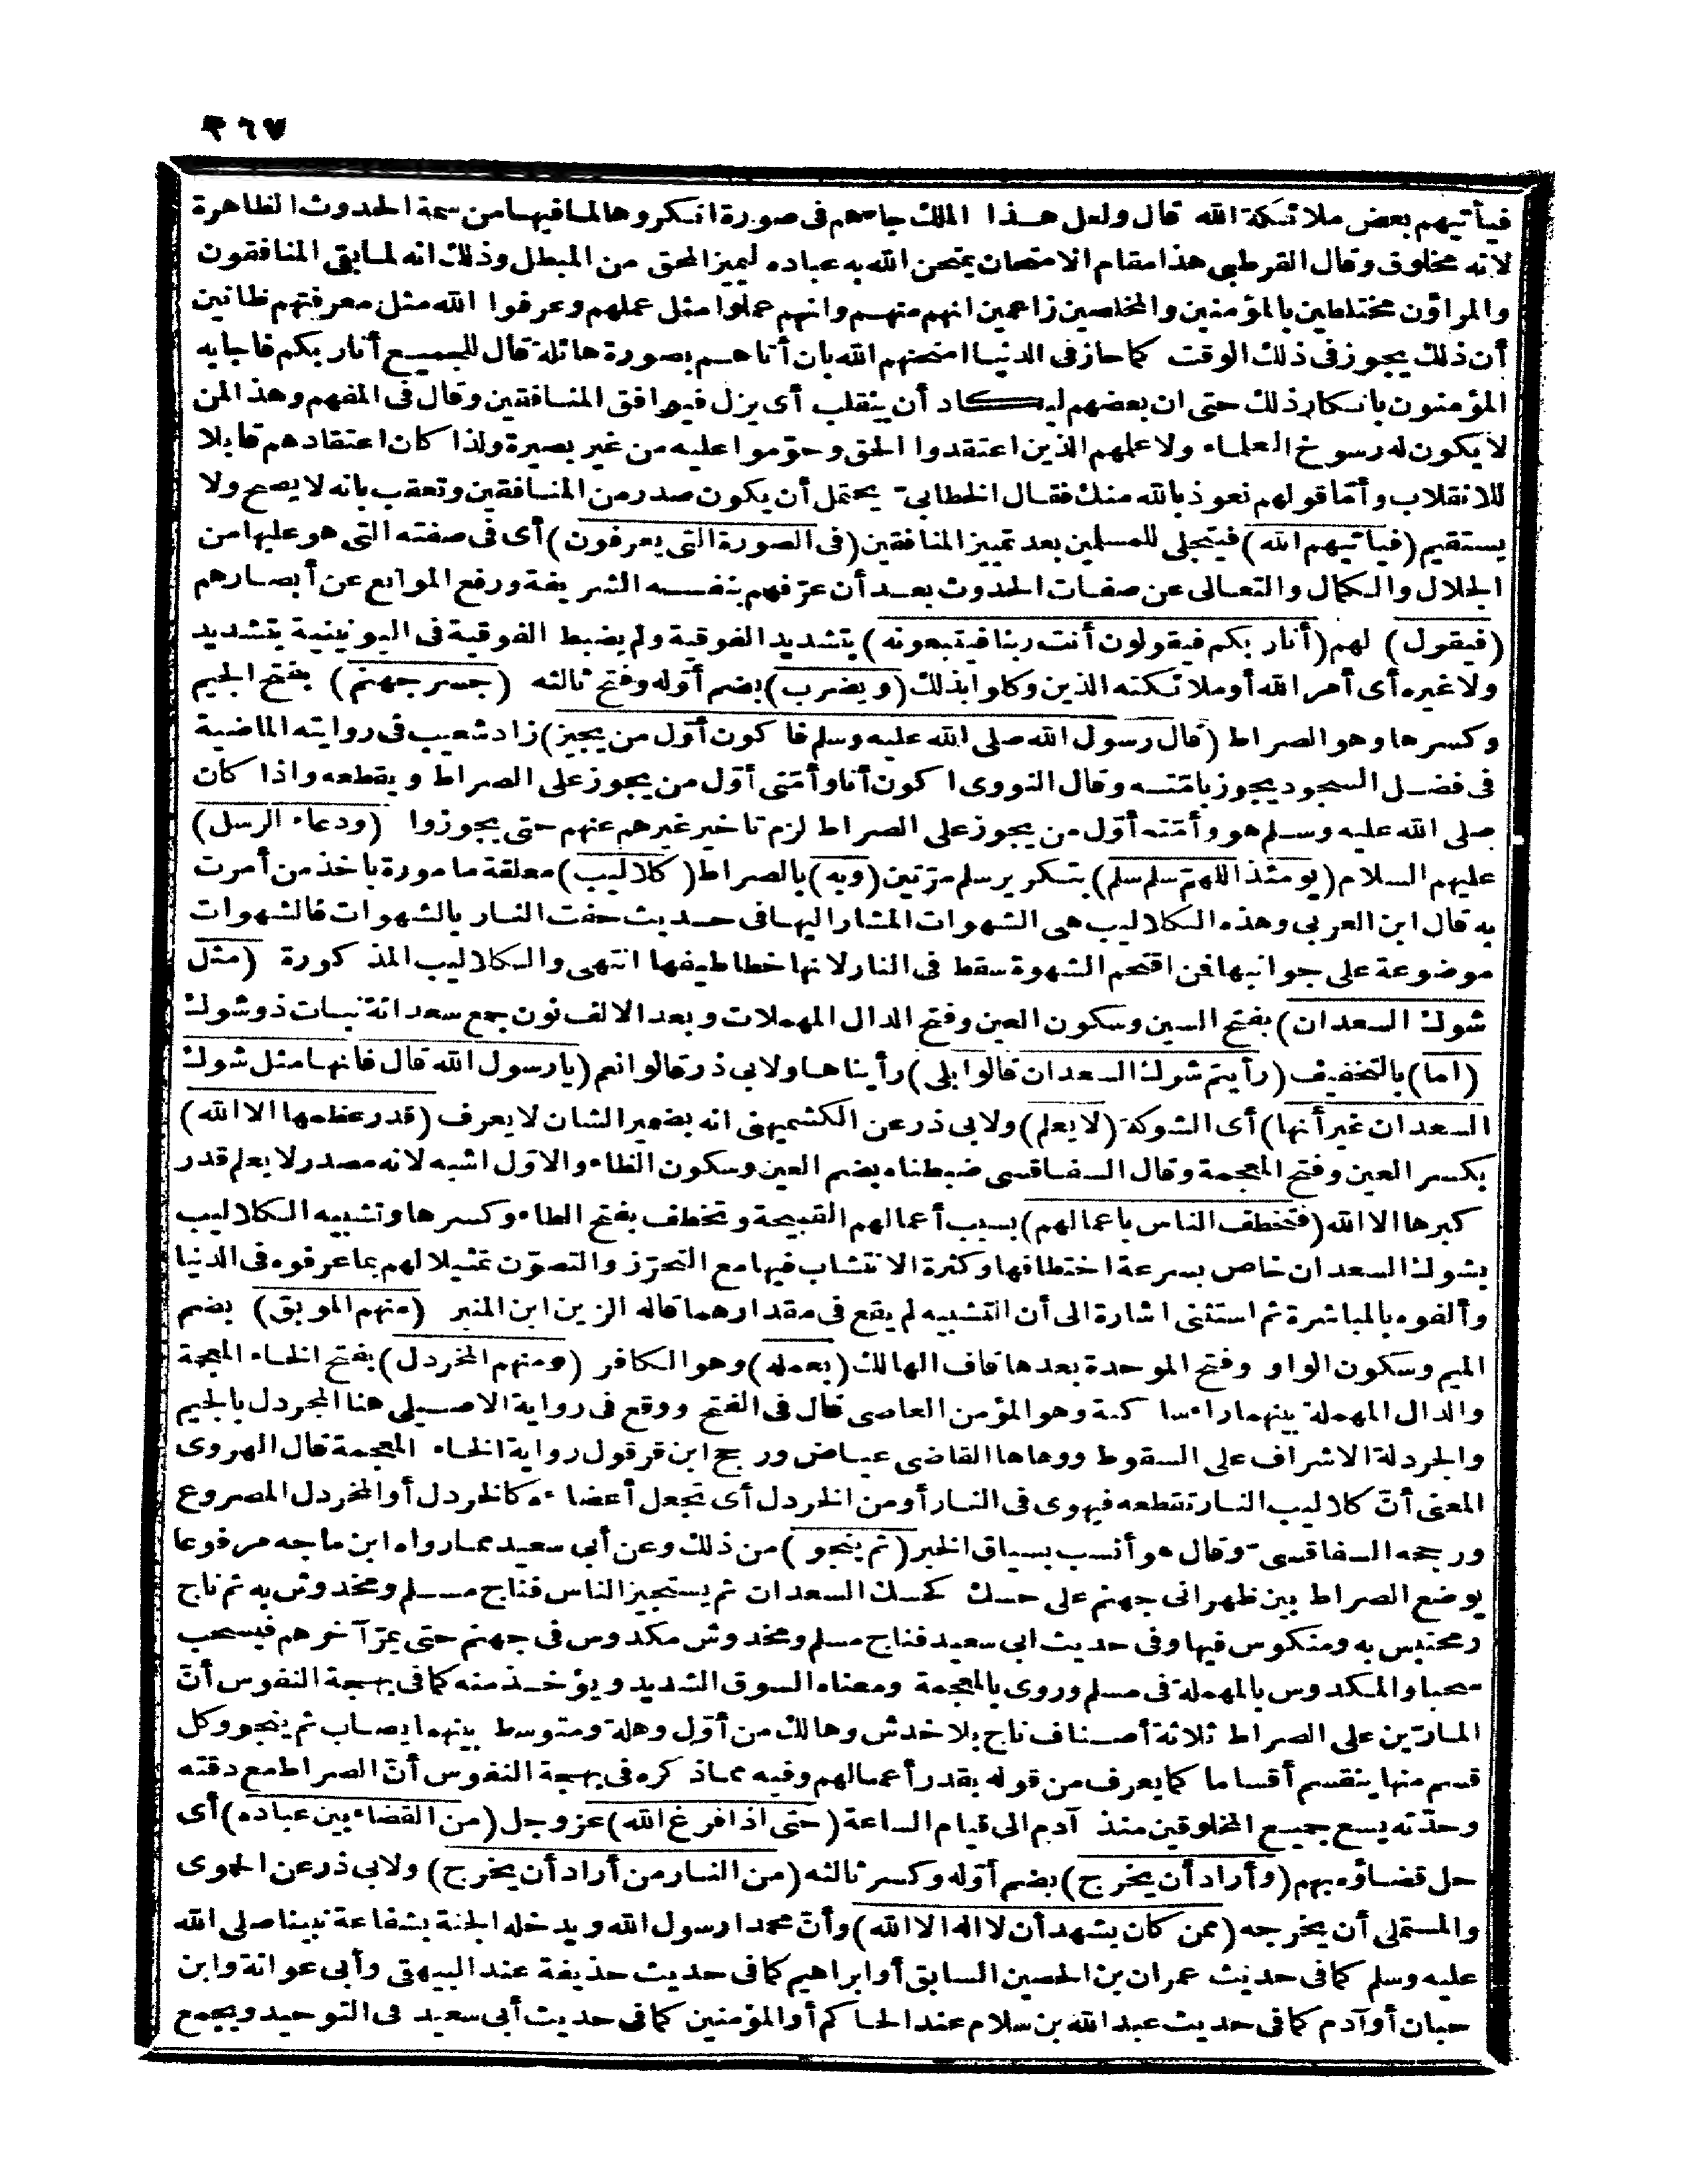 ٣٦٧
فيأتيهم بعض ملائكة الله قال ولعل هذا الملك جاءهم فى صورة انكروها لما فيها من سمة الحدوث الظاهرة
لانه مخلوق وقال القرطبى هذا مقام الامتحان يمتحن الله به عباده ليميز المحق من المبطل وذلك انه لما بقى المنافقون
والمراؤن مختلطين بالمؤمنين والمخلصين زاعمين انهم منهم وانهم عملوا مثل عملهم وعرفوا الله مثل معرفتهم ظانين
أن ذلك يجوز فى ذلك الوقت كما جاز فى الدنيا امتحنهم الله بان أتاهم بصورة هائلة قال للجميع أنا ربكم فاجابه
المؤمنون بانكار ذلك حتى ان بعضهم ليكاد أن ينقلب أى يزل فيوافق المنافقين وقال فى المفهم وهذا لمن
لا يكون له رسوخ العلماء ولا علمهم الذين اعتقدوا الحق وحوّموا عليه من غير بصيرة ولذا كان اعتقادهم قابلا
للانقلاب وأمّا قولهم نعوذ بالله منك فقال الخطابى يحتمل أن يكون صدر من المنافقين وتعقب بانه لا يصح ولا
يستقيم (فيأتيهم الله) فيتجلى للمسلمين بعد تمييز المنافقين (فى الصورة التى يعرفون) أى فى صفته التى هو عليها من
الجلال والكمال والتعالى عن صفات الحدوث بعد أن عرّفهم بنفسه الشريفة ورفع الموانع عن أبصارهم
(فيقول) لهم (أنا ربكم فيقولون أنت ربنا فيتبعونه) بتشديد الفوقية ولم يضبط الفوقية فى اليونينية بتشديد
ولا غيره أى أمر الله أو ملائكته الذين وكلوا بذلك (ويضرب) بضم أوّله وفتح ثالثه (جسر جهنم) بفتح الجيم
وكسرها وهو الصراط (قال رسول الله صلى الله عليه وسلم فاكون أوّل من يجيز) زاد شعيب فى روايته الماضية
فى فضل السجود يجوز بامّته وقال النووى اكون أنا وأمّتى أوّل من يجوز على الصراط ويقطعه واذا كان
صلى الله عليه وسلم هو وأمّته أوّل من يجوز على الصراط لزم تاخير غيرهم عنهم حتى يجوزوا (ودعاء الرسل)
عليهم السلام (يومئذ اللهمّ سلم سلم) بتكرير سلم مرّتين (وبه) بالصراط (كلاليب) معلقة مامورة باخذ من أمرت
به قال ابن العربى وهذه الكلاليب هى الشهوات المشار اليها فى حديث حفت النار بالشهوات فالشهوات
موضوعة على جوانبها فمن اقتحم الشهوة سقط فى النار لانها خطاطيفها انتهى والكلاليب المذكورة (مثل
شوك السعدان) بفتح السين وسكون العين وفتح الدال المهملات وبعد الالف نون جمع سعدانة نبات ذو شوك
(اما) بالتخفيف (رأيتم شوك السعدان قالوا بلى) رأيناها ولابى ذر قالوا نعم (يا رسول الله قال فانها مثل شوك
السعدان غير أنها) أى الشوكة (لا يعلم) ولابى ذر عن الكشميهنى انه بضمير الشان لا يعرف (قدر عظمها الا الله)
بكسر العين وفتح المعجمة وقال السفاقسى ضبطناه بضم العين وسكون الظاء والاوّل اشبه لانه مصدر لا يعلم قدر
كبرها الا الله (فتخطف الناس باعمالهم) بسبب أعمالهم القبيحة وتخطف بفتح الطاء وكسرها وتشبيه الكلاليب
بشوك السعدان خاص بسرعة اختطافها وكثرة الانتشاب فيها مع التحرّز والتصوّن تمثيلا لهم بما عرفوه فى الدنيا
وألفوه بالمباشرة ثم استثنى اشارة الى أن التشبيه لم يقع فى مقدارهما قاله الزين ابن المنير (منهم الموبق) بضم
الميم وسكون الواو وفتح الموحدة بعدها قاف الهالك (بعمله) وهو الكافر (ومنهم المخردل) بفتح الخاء المعجمة
والدال المهملة بينهما راء ساكنة وهو المؤمن العاصى قال فى الفتح ووقع فى رواية الاصيلى هنا المجردل بالجيم
والجردلة الاشراف على السقوط ووهاها القاضى عياض ورجح ابن قرقول رواية الخاء المعجمة قال الهروى
المعنى أنّ كلاليب النار تقطعه فيهوى فى النار أو من الخردل أى تجعل أعضاءه كالخردل أو المخردل المصروع
ورجحه السفاقسى وقال هو أنسب بسياق الخبر (ثم ينجو) من ذلك وعن أبى سعيد مما رواه ابن ماجه مرفوعا
يوضع الصراط بين ظهرانى جهنم على حسك كحسك السعدان ثم يستجيز الناس فناج مسلم ومخدوش به ثم ناج
ومحتبس به ومنكوس فيها وفى حديث ابى سعيد فناج مسلم ومخدوش مكدوس فى جهنم حتى يمرّ آخرهم فيسحب
سحبا والمكدوس بالمهملة فى مسلم وروى بالمعجمة ومعناه السوق الشديد ويؤخذ منه كما فى بهجة النفوس أنّ
المارّين على الصراط ثلاثة أصناف ناج بلا خدش وهالك من أوّل وهلة ومتوسط بينهما يصاب ثم ينجو وكل
قسم منها ينقسم أقساما كما يعرف من قوله بقدر أعمالهم وفيه مما ذكره فى بهجة النفوس أنّ الصراط مع دقته
وحدّته يسع جميع المخلوقين منذ آدم الى قيام الساعة (حتى اذا فرغ الله) عز وجل (من القضاء بين عباده) أى
حل قضاؤه بهم (وأراد أن يخرج) بضم أوّله وكسر ثالثه (من النار من أراد أن يخرج) ولابى ذر عن الحموى
والمستملى أن يخرجه (ممن كان يشهد أن لا اله الا الله) وأنّ محمدا رسول الله ويدخله الجنة بشفاعة نبينا صلى الله
عليه وسلم كما فى حديث عمران بن الحصين السابق أو ابراهيم كما فى حديث حذيفة عند البيهقى وأبى عوانة وابن
حبان أو آدم كما فى حديث عبد الله بن سلام عند الحاكم أو المؤمنين كما فى حديث أبى سعيد فى التوحيد ويجمع